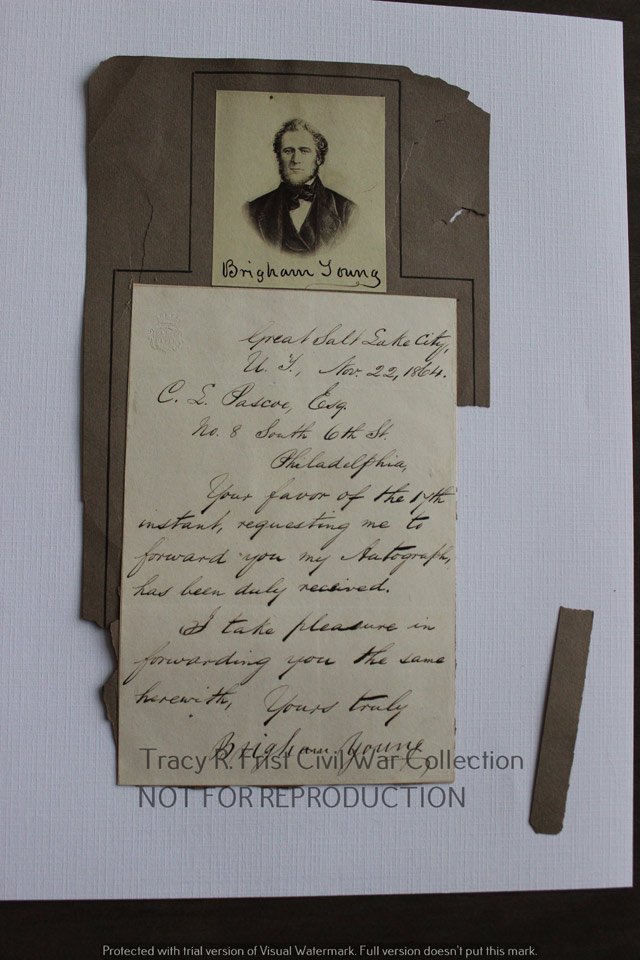 Brigham Young
Great Salt Lake City,
U. T., Nov. 22, 1864.
C. L. Pascoe, Esq.
No. 8 South 6th St.
Philadelphia,
Your favor of the 17th
instant, requesting me to
forward you my Autograph,
has been duly received.
I take pleasure in
forwarding you the same
herewith, Yours truly
Brigham Young
Tracy R. Frist Civil War Collection
NOT FOR REPRODUCTION
Protected with trial version of Visual Watermark. Full version doesn't put this mark.